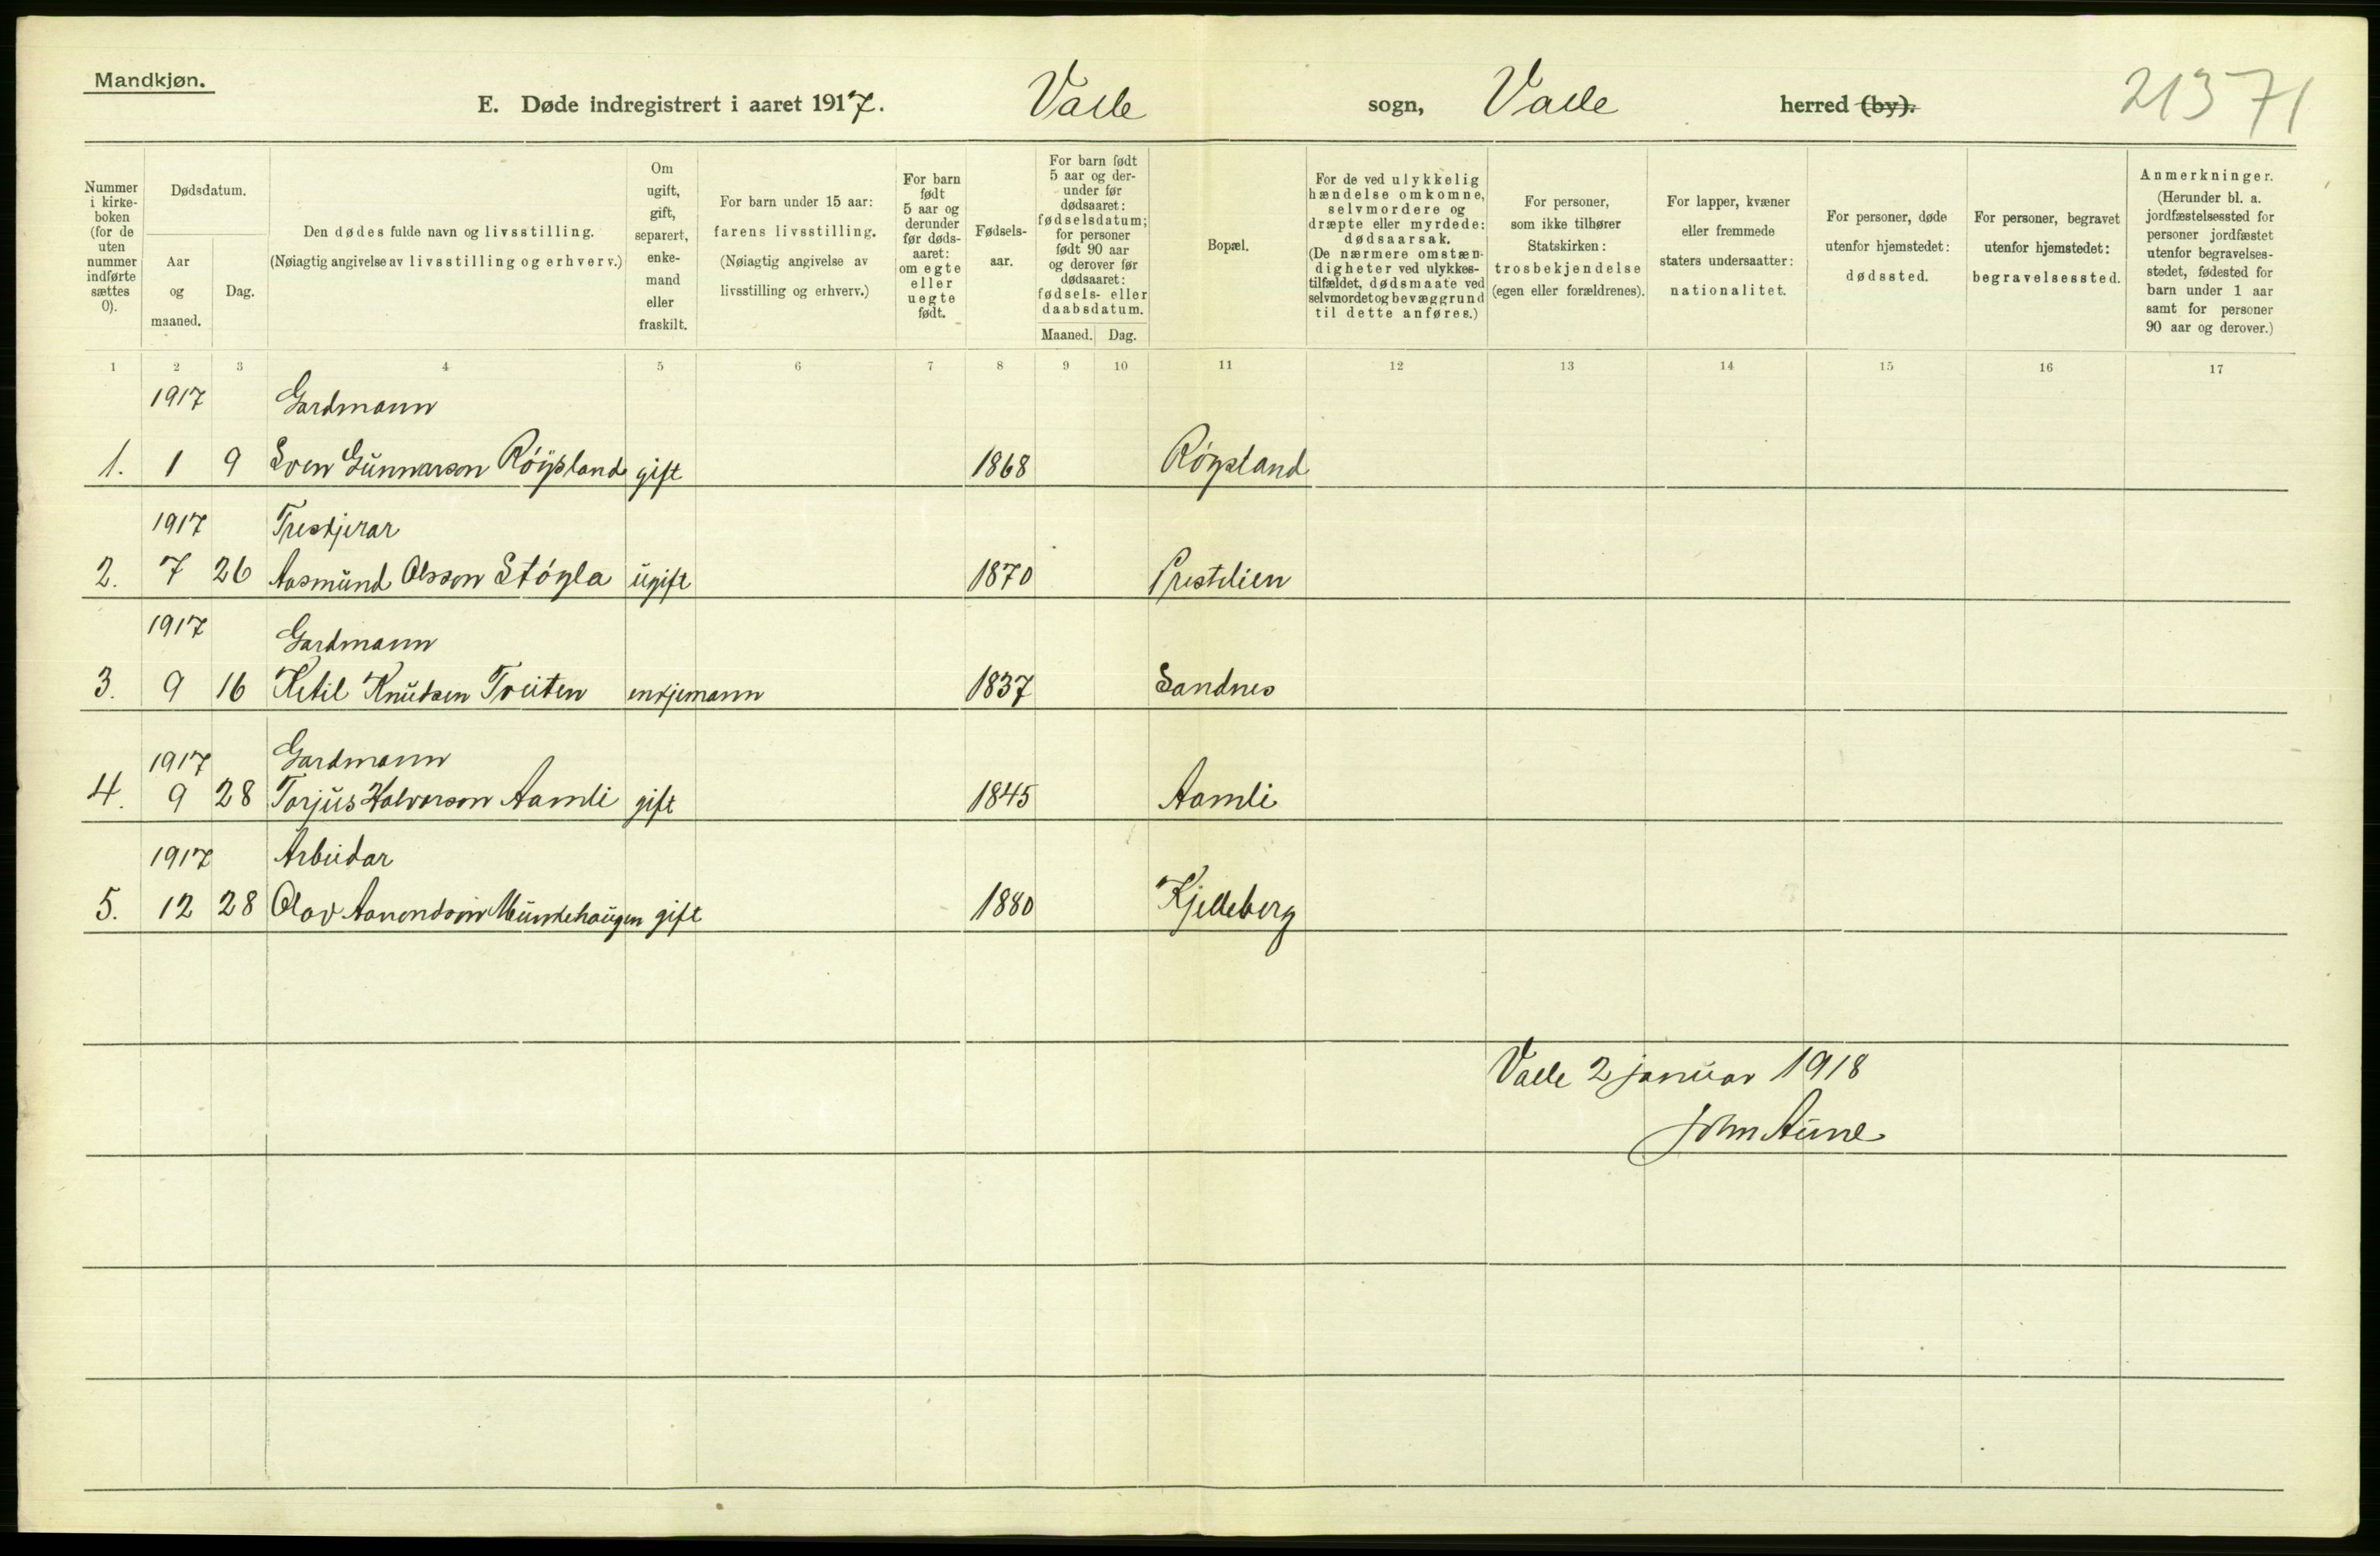 Mandkjøn.
E. Døde indregistrert i aaret 1917. Valle sogn, Valle herred (by).
21371
Nummer i kirke- boken (for de uten nummer indførte sættes 0).
Dødsdatum.
Aar og maaned.
Dag.
Den dødes fulde navn og livsstilling.
(Nøiagtig angivelse av livsstilling og erhverv.)
Om ugift, gift, separert, enke- mand eller fraskilt.
For barn under 15 aar:
farens livsstilling.
(Nøiagtig angivelse av
livsstilling og erhverv.)
For barn født 5 aar og derunder før døds- aaret: om egte eller uegte født.
Fødsels- aar.
For barn født 5 aar og der- under før dødsaaret: fødselsdatum; for personer født 90 aar og derover før dødsaaret: fødsels- eller daabsdatum.
Maaned. Dag.
Bopæl.
For de ved ulykkelig hændelse omkomne, selvmordere og dræpte eller myrdede: dødsaarsak.
(De nærmere omstæn- digheter ved ulykkes- tilfældet, dødsmaate ved selvmordet og bevæggrund til dette anføres.)
For personer, som ikke tilhører Statskirken: trosbekjendelse (egen eller forældrenes).
For lapper, kvæner eller fremmede staters undersaatter: nationalitet.
For personer, døde utenfor hjemstedet: dødssted.
For personer, begravet utenfor hjemstedet: begravelsessted.
Anmerkninger.
(Herunder bl. a. jordfæstelsessted for personer jordfæstet utenfor begravelses- stedet, fødested for barn under 1 aar samt for personer 90 aar og derover.)
1 2 3 4 5 6 7 8 9 10 11 12 13 14 15 16 17
1917 Gardmann
1. 1 9 Sven Gunnarson Röysland gift 1868 Röysland
1917 Treskjerar
2. 7 26 Aasmund Olsson Stöyla ugift 1870 Prestelien
1917 Gardmann
3. 9 16 Ketil Knutsen Tveiten enkjemann 1837 Sandnes
1917 Gardmann
4. 9 28 Torjus Halvorson Aamli gift 1845 Aamli
1917 Arbeidar
5. 12 28 Olav Aanondson Mundehaugen gift 1880 Kjelleberg
Valle 2 januar 1918
John Aune